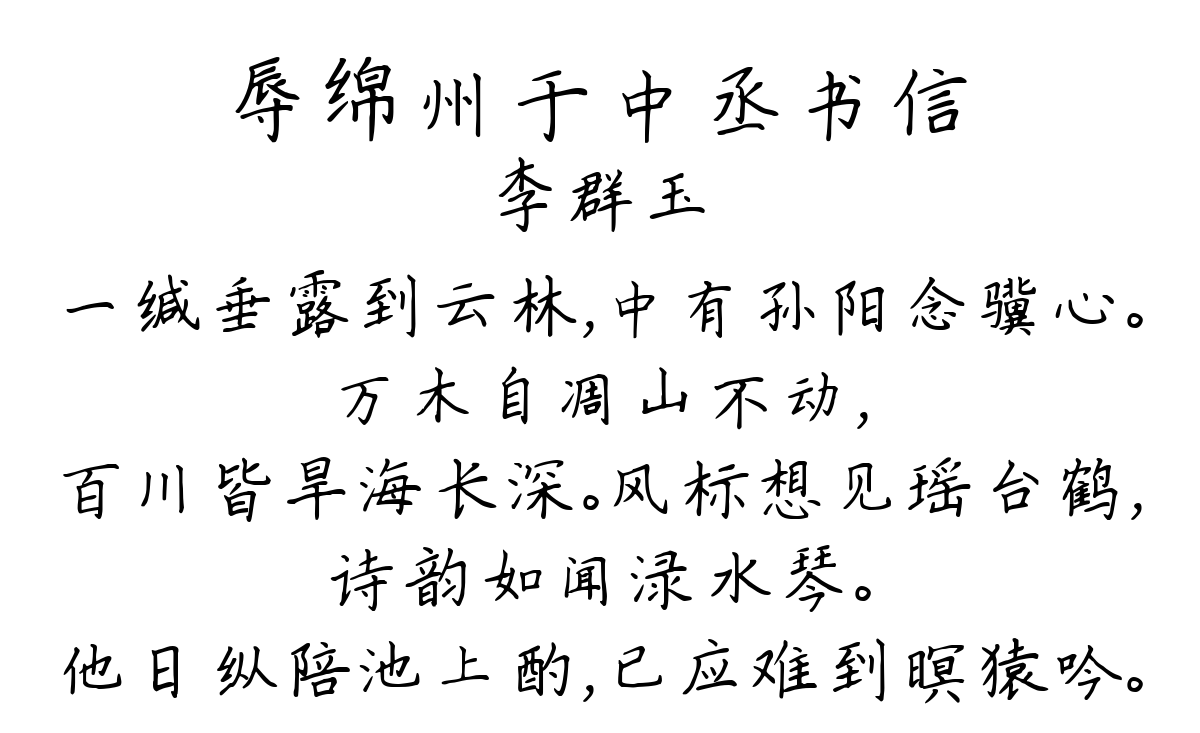 辱绵州于中丞书信
李群玉
一缄垂露到云林,中有孙阳念骥心。
万木自凋山不动,
百川皆旱海长深。风标想见瑶台鹤,
诗韵如闻渌水琴。
他日纵陪池上酌,已应难到暝猿吟。